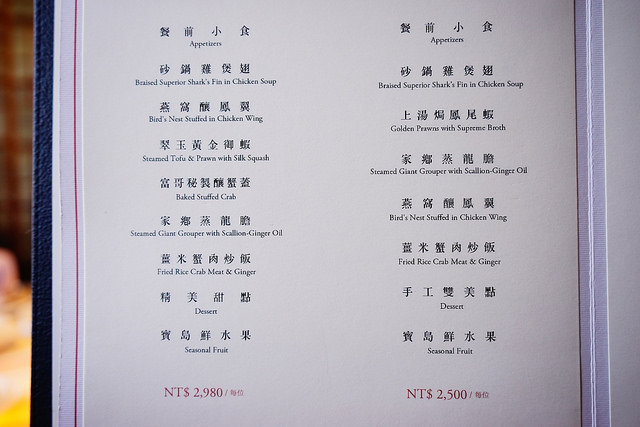 餐前小食
Appetizers
砂鍋雞煲翅
Braised Superior Shark's Fin in Chicken Soup
燕窩釀鳳翼
Bird's Nest Stuffed in Chicken Wing
翠玉黃金御蝦
Steamed Tofu & Prawn with Silk Squash
富哥秘製釀蟹蓋
Baked Stuffed Crab
家鄉蒸龍膽
Steamed Giant Grouper with Scallion-Ginger Oil
薑米蟹肉炒飯
Fried Rice Crab Meat & Ginger
精美甜點
Dessert
寶島鮮水果
Seasonal Fruit
NT$ 2,980 / 每位
餐前小食
Appetizers
砂鍋雞煲翅
Braised Superior Shark's Fin in Chicken Soup
上湯焗鳳尾蝦
Golden Prawns with Supreme Broth
家鄉蒸龍膽
Steamed Giant Grouper with Scallion-Ginger Oil
燕窩釀鳳翼
Bird's Nest Stuffed in Chicken Wing
薑米蟹肉炒飯
Fried Rice Crab Meat & Ginger
手工雙美點
Dessert
寶島鮮水果
Seasonal Fruit
NT$ 2,500 / 每位